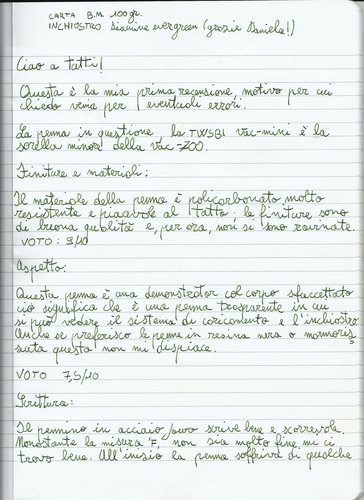 CARTA B.M. 100gr.
INCHIOSTRO Diamine evergreen (grazie Daniela!)
Ciao a tutti!
Questa è la mia prima recensione, motivo per cui
chiedo venia per eventuali errori.
La penna in questione, la TWSBI vac-mini è la
sorella minore della vac-700.
Finiture e materiali:
Il materiale della penna è policarbonato molto
resistente e piacevole al tatto, le finiture sono
di buona qualità e, per ora, non si sono rovinate.
VOTO: 9/10
Aspetto:
Questa penna è una demonstrator col corpo sfaccettato
ciò significa che è una penna trasparente in cui
si può vedere il sistema di caricamento e l'inchiostro.
Anche se preferisco le penne in resina nera o marmoriz
zata questa non mi dispiace.
VOTO 7,5/10
Scrittura:
Il pennino in acciaio jowo scrive bene e scorrevole.
Nonostante la misura "F" non sia molto fine mi ci
trovo bene. All'inizio la penna soffriva di qualche